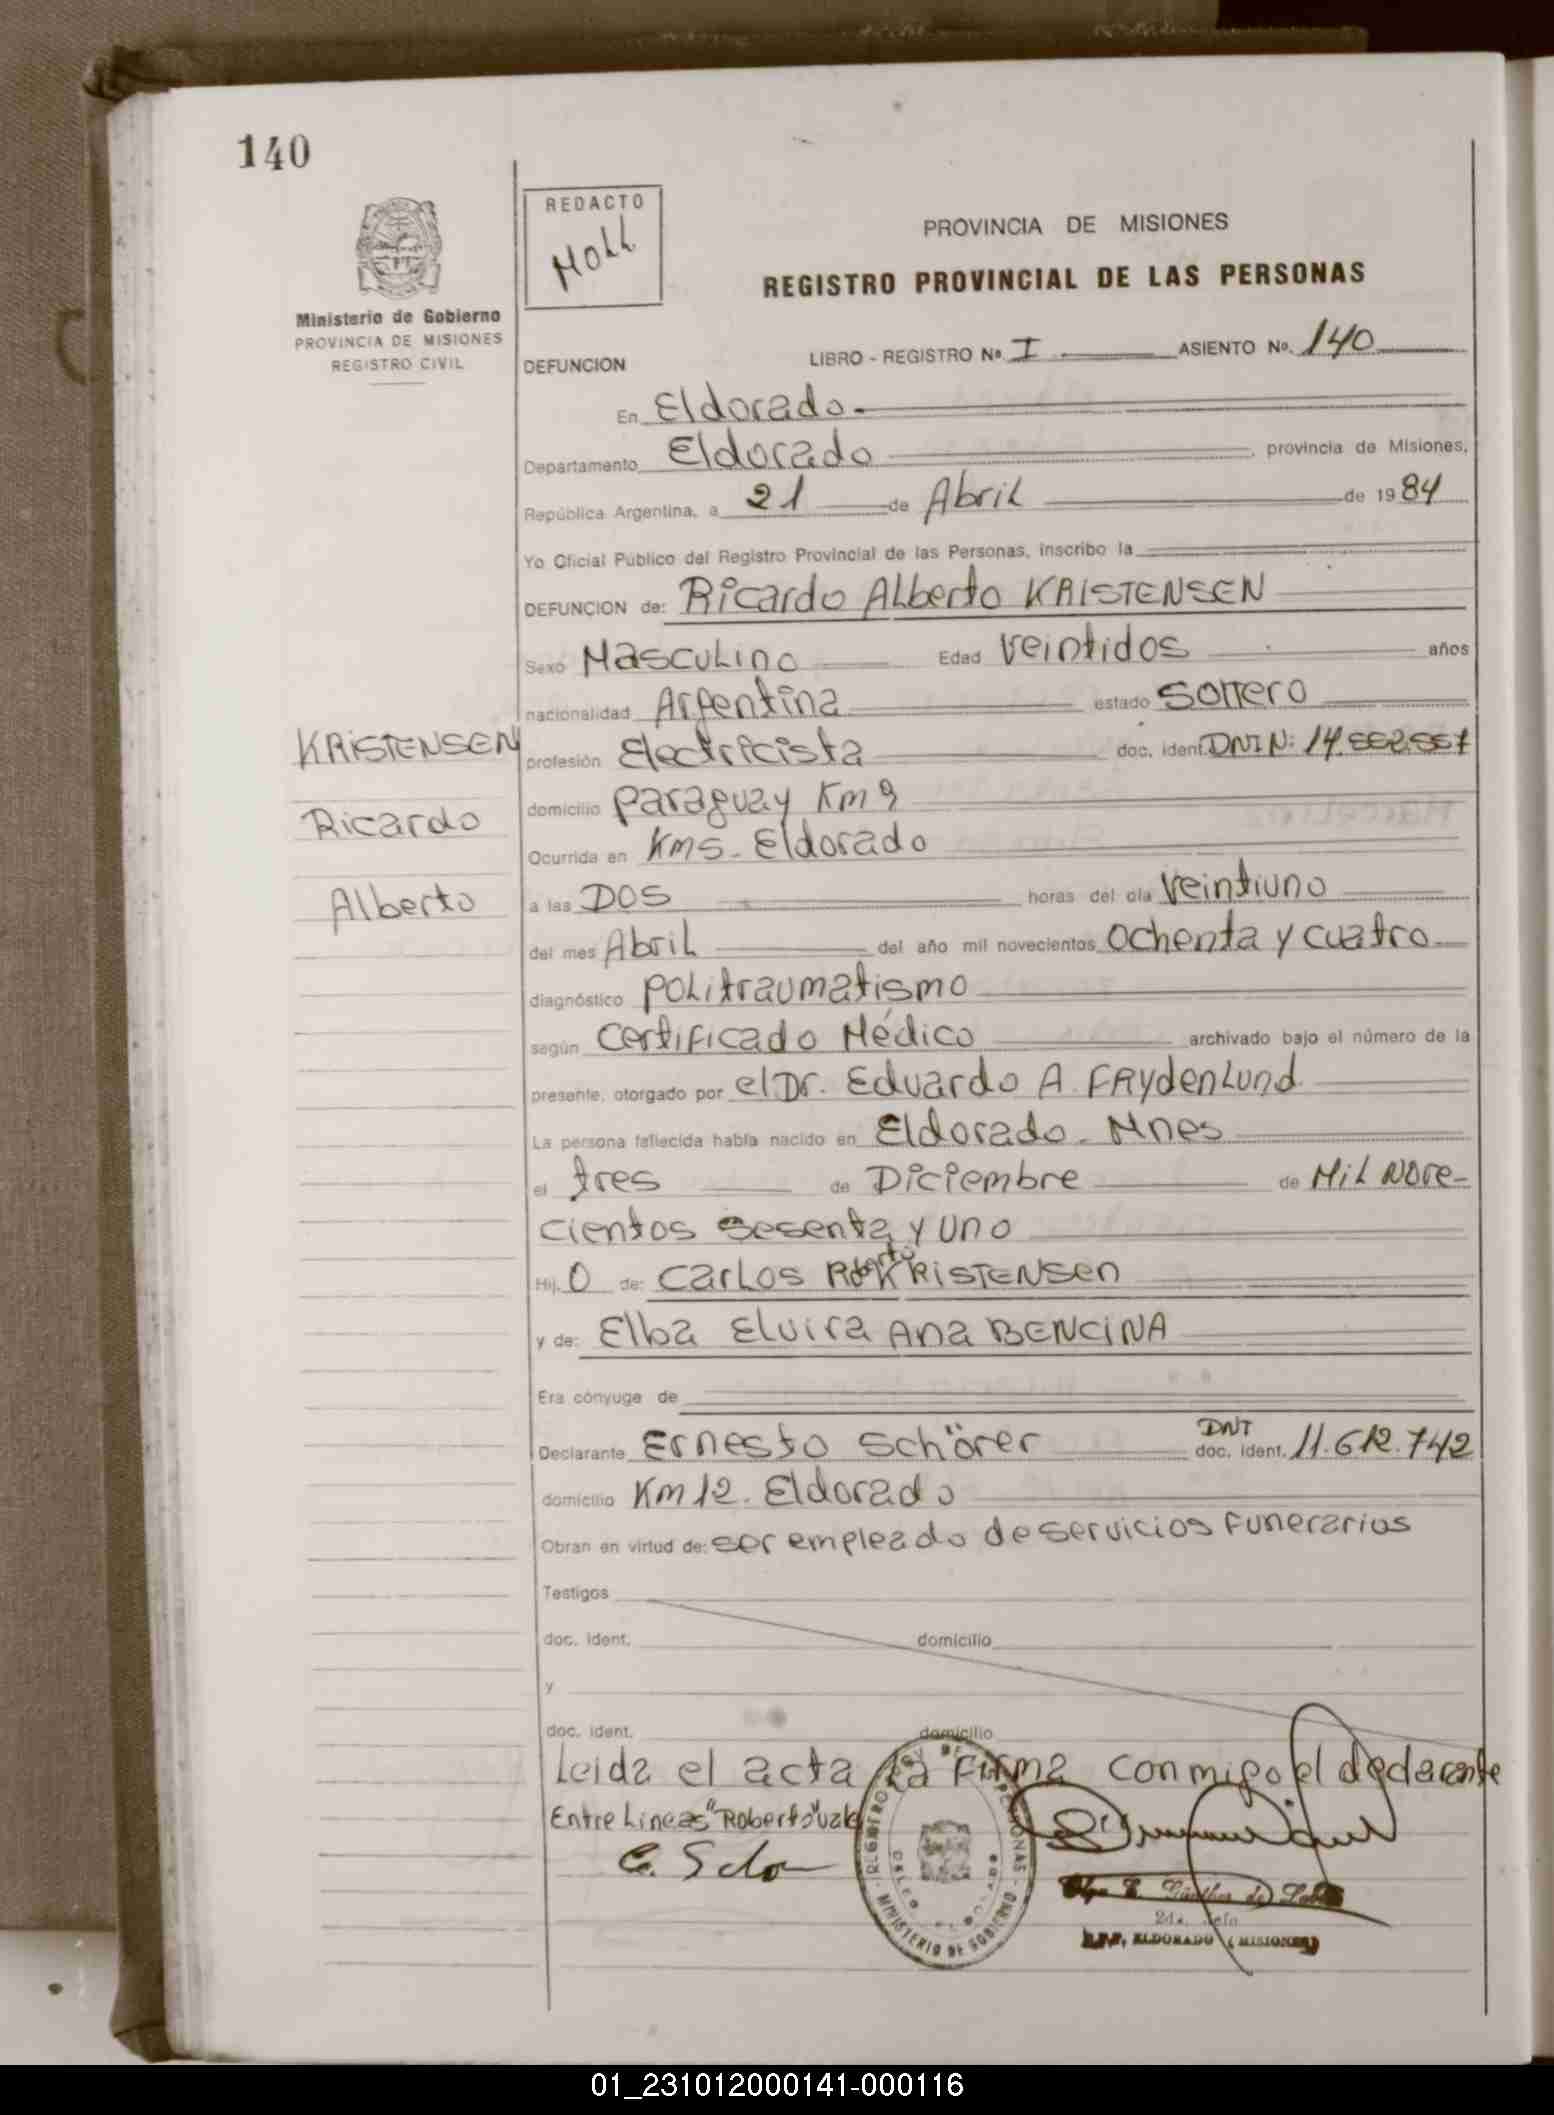 140
REDACTO
MOLL
PROVINCIA DE MISIONES
REGISTRO PROVINCIAL DE LAS PERSONAS
Ministerio de Gobierno
PROVINCIA DE MISIONES
REGISTRO CIVIL
DEFUNCION
LIBRO - REGISTRO Nº I ASIENTO Nº. 140
En Eldorado.
Departamento Eldorado, provincia de Misiones,
República Argentina, a 21 de Abril de 1984
Yo Oficial Público del Registro Provincial de las Personas, inscribo la
DEFUNCION de: Ricardo Alberto KRISTENSEN
Sexo Masculino Edad Veintidos años
nacionalidad Argentina estado SOLTERO
KRISTENSEN
Ricardo
Alberto
profesión Electricista doc. ident. DNI N:
domicilio Paraguay Km 9
Ocurrida en Km5. Eldorado
a las DOS horas del día Veintiuno
del mes Abril del año mil novecientos Ochenta y cuatro
diagnóstico Politraumatismo
según Certificado Médico archivado bajo el número de la
presente, otorgado por el Dr. Eduardo A. FRydenLund
La persona fallecida había nacido en Eldorado - Mnes
el tres de Diciembre de Mil Nove-
cientos Sesenta y uno
Hij. O de: Carlos Roberto KRISTENSEN
y de: Elba Elvira Ana BENCINA
Era cónyuge de
Declarante Ernesto Schörer DNI doc. ident. 11.612.742
domicilio Km 12. Eldorado
Obran en virtud de: ser empleado de servicios Funerarios
Testigos
doc. ident. domicilio
y
doc. ident. domicilio
Leida el acta la Firma conmigo el declarante
Entre Lineas "Roberto" vale
REGISTRO PROV. DE LAS PERSONAS
MINISTERIO DE GOBIERNO
2da. Jefe
R.P.P. ELDORADO (MISIONES)
01_231012000141-000116